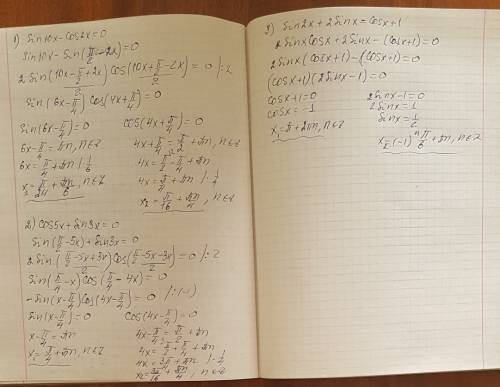 1) Sin10x-cos2x=0
Sin10x-Sin(π/2-2x)=0
2Sin(10x-π/2+2x)/2 Cos(10x+π/2-2x)/2=0 /:2
Sin(6x-π/4)Cos(4x+π/4)=0
Sin(6x-π/4)=0
6x-π/4=πn, n∈z
6x=π/4+πn /·1/6
x₁=π/24+πn/6, n∈z
cos(4x+π/4)=0
4x+π/4=π/2+πn, n∈z
4x=π/2-π/4+πn
4x=π/4+πn /·1/4
x₂=π/16+πn/4, n∈z
2) cos5x+sin3x=0
Sin(π/2-5x)+Sin3x=0
2Sin(π/2-5x+3x)/2 Cos(π/2-5x-3x)/2=0 /:2
Sin(π/4-x)Cos(π/4-4x)=0
-Sin(x-π/4)Cos(4x-π/4)=0 /:(-1)
Sin(x-π/4)=0
x-π/4=πn
x₁=π/4+πn, n∈z
Cos(4x-π/4)=0
4x-π/4=π/2+πn
4x=π/2+π/4+πn
4x=3π/4+πn /·1/4
x₂=3π/16+πn/4, n∈z
3) Sin2x+2Sinx=cosx+1
2Sinxcosx+2Sinx-(cosx+1)=0
2Sinx(cosx+1)-(cosx+1)=0
(cosx+1)(2Sinx-1)=0
cosx+1=0
cosx=-1
x₁=π+2πn, n∈z
2Sinx-1=0
2Sinx=1
Sinx=1/2
x₂=(-1)ⁿπ/6+πn, n∈z